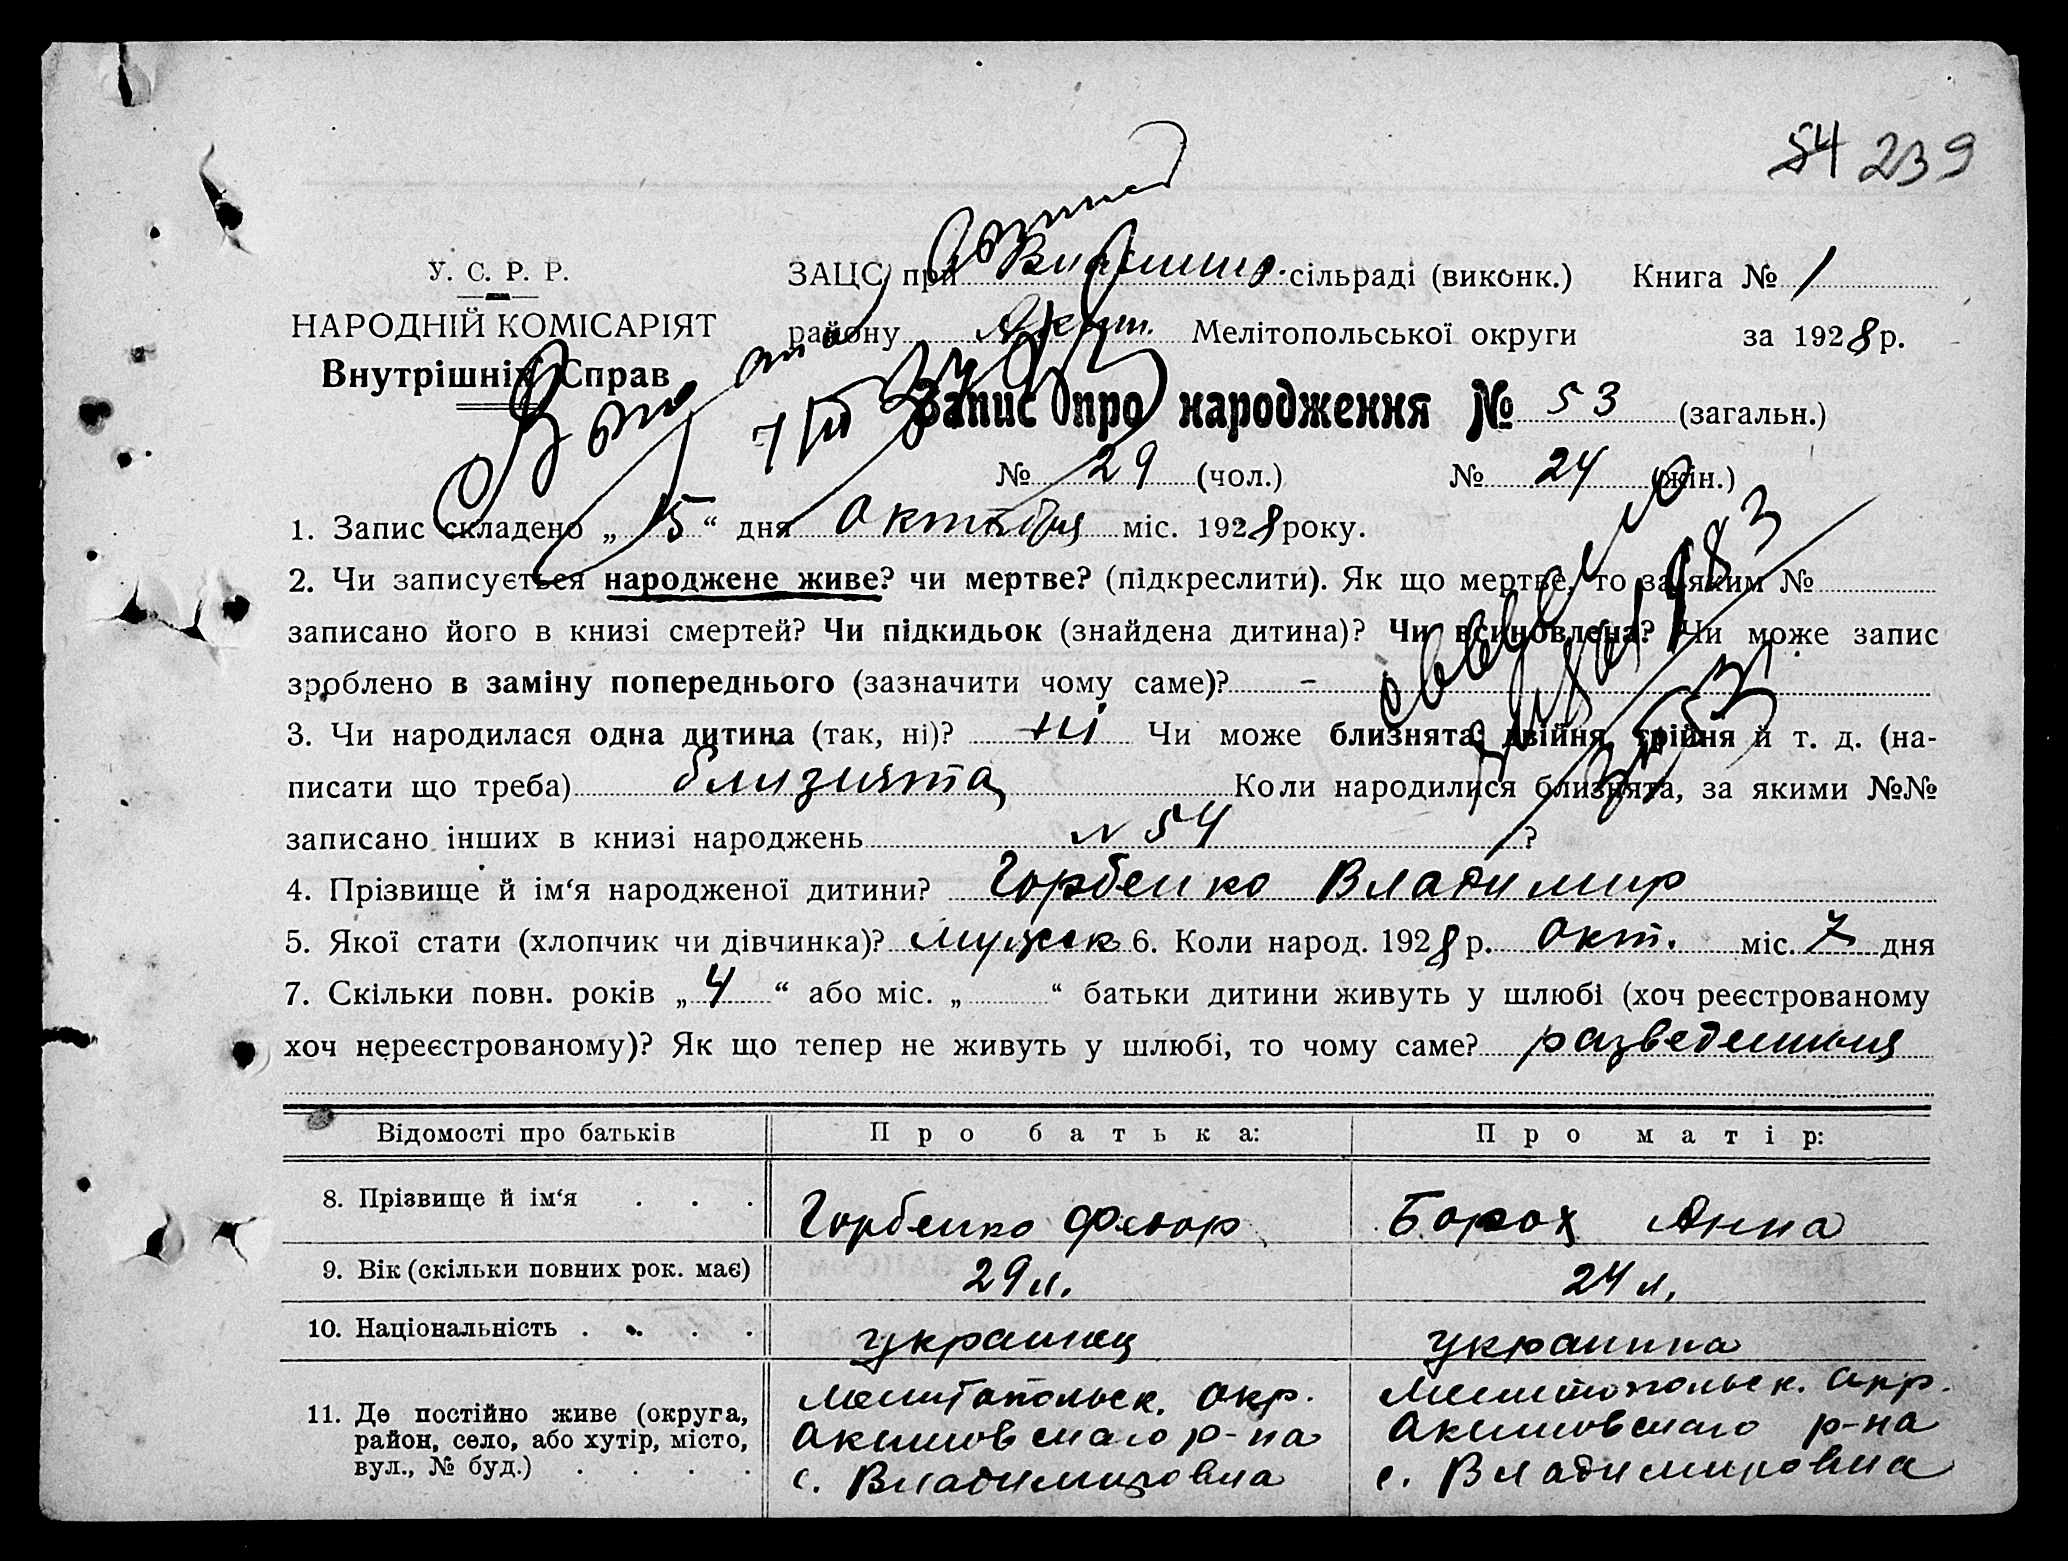 54 239
У. С. Р. Р.
НАРОДНІЙ КОМІСАРІЯТ
Внутрішніх Справ
ЗАЦС при сільраді (виконк.) Книга № 1
району Аким. Мелітопольської округи за 1928 р.
Запис про народження № 53 (загальн.)
№ 29 (чол.) № 24 (жін.)
1. Запис складено „ 15 “ дня Октября міс. 1928 року.
2. Чи записується народжене живе? чи мертве? (підкреслити). Як що мертве, то за яким №
записано його в книзі смертей? Чи підкидьок (знайдена дитина)? Чи всиновлена? Чи може запис
зроблено в заміну попереднього (зазначити чому саме)? -
3. Чи народилася одна дитина (так, ні)? ні Чи може близнята, двійня, трійня й т. д. (на-
писати що треба) близнята Коли народилися близнята, за якими №№
записано інших в книзі народжень N 54 ?
4. Прізвище й ім‘я народженої дитини? Горбенко Владимир
5. Якої стати (хлопчик чи дівчинка)? мужск 6. Коли народ. 1928 р. Окт. міс. 7 дня
7. Скільки повн. років „ 4 “ або міс. „ “ батьки дитини живуть у шлюбі (хоч реєстрованому
хоч нереєстрованому)? Як що тепер не живуть у шлюбі, то чому саме?
Відомості про батьків Про батька: Про матір:
8. Прізвище й ім‘я . . . Горбенко Федор Борох Анна
9. Вік (скільки повних рок. має) 29 л. 24 л.
10. Національність . . . . украинец украинка
11. Де постійно живе (округа, район, село, або хутір, місто, вул., № буд.) . . . .
Мелитопольск. Окр. Мелитопольск. Окр.
Акимовского р-на Акимовского р-на
с. Владимировка с. Владимировка